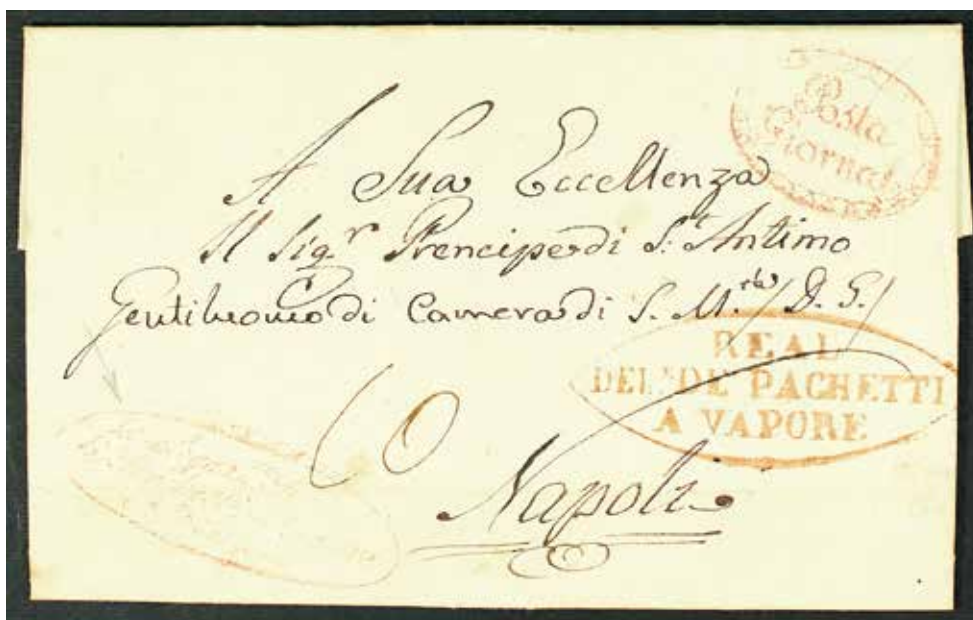 Posta
Giornal
A Sua Eccellenza
Il Sig.r Prencipe di S.t Antimo
Gentiluomo di Camera di S. M. D. G.
REAL
DEL.ne DE PACHETTI
A VAPORE
Napoli